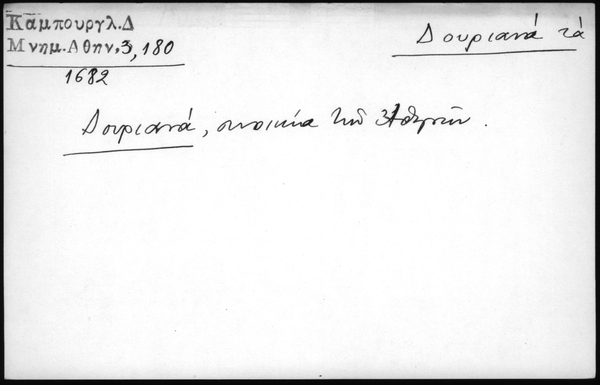 Καμπουργλ.Δ
Μνημ.Αθην,3,180
1682
Δουριανά τά
Δουριανά, συνοικία τῶν Ἀθηνῶν.